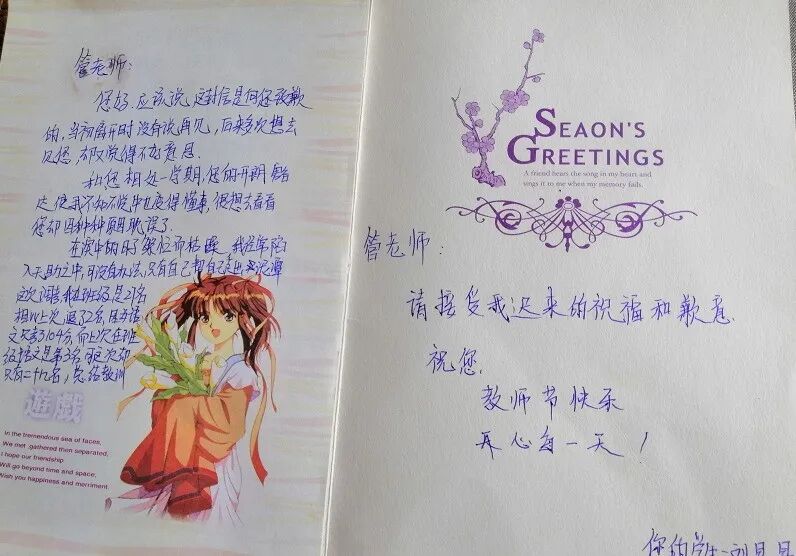 管老师：
您好，应该说，这封信是向您致歉
的，当初离开时没有说再见，后来多次想去
见您，却又觉得不好意思．
和您相处一学期，您的开朗、豁
达，使我不知不觉中也变得懂事，很想去看看
您却因种种原因耽误了．
在溪中的日子紧张而枯燥，我经常陷
入无助之中，可没有办法，只有自己帮自己走出泥潭
这次调考我在班级是21名
相比上次退了2名，因为语
文只考了104分，而上次在班
级语文是第3名，这次却
只有二十几名，总结教训
遊戲
In the tremendous sea of faces,
We met ,gathered then separated,
I hope our friendship
Will go beyond time and space,
Wish you happiness and merriment.
SEAON'S
GREETINGS
A friend hears the song in my heart and
sings it to me when my memory fails.
管老师：
请接受我迟来的祝福和歉意．
祝您．
教师节快乐
开心每一天！
你的学生